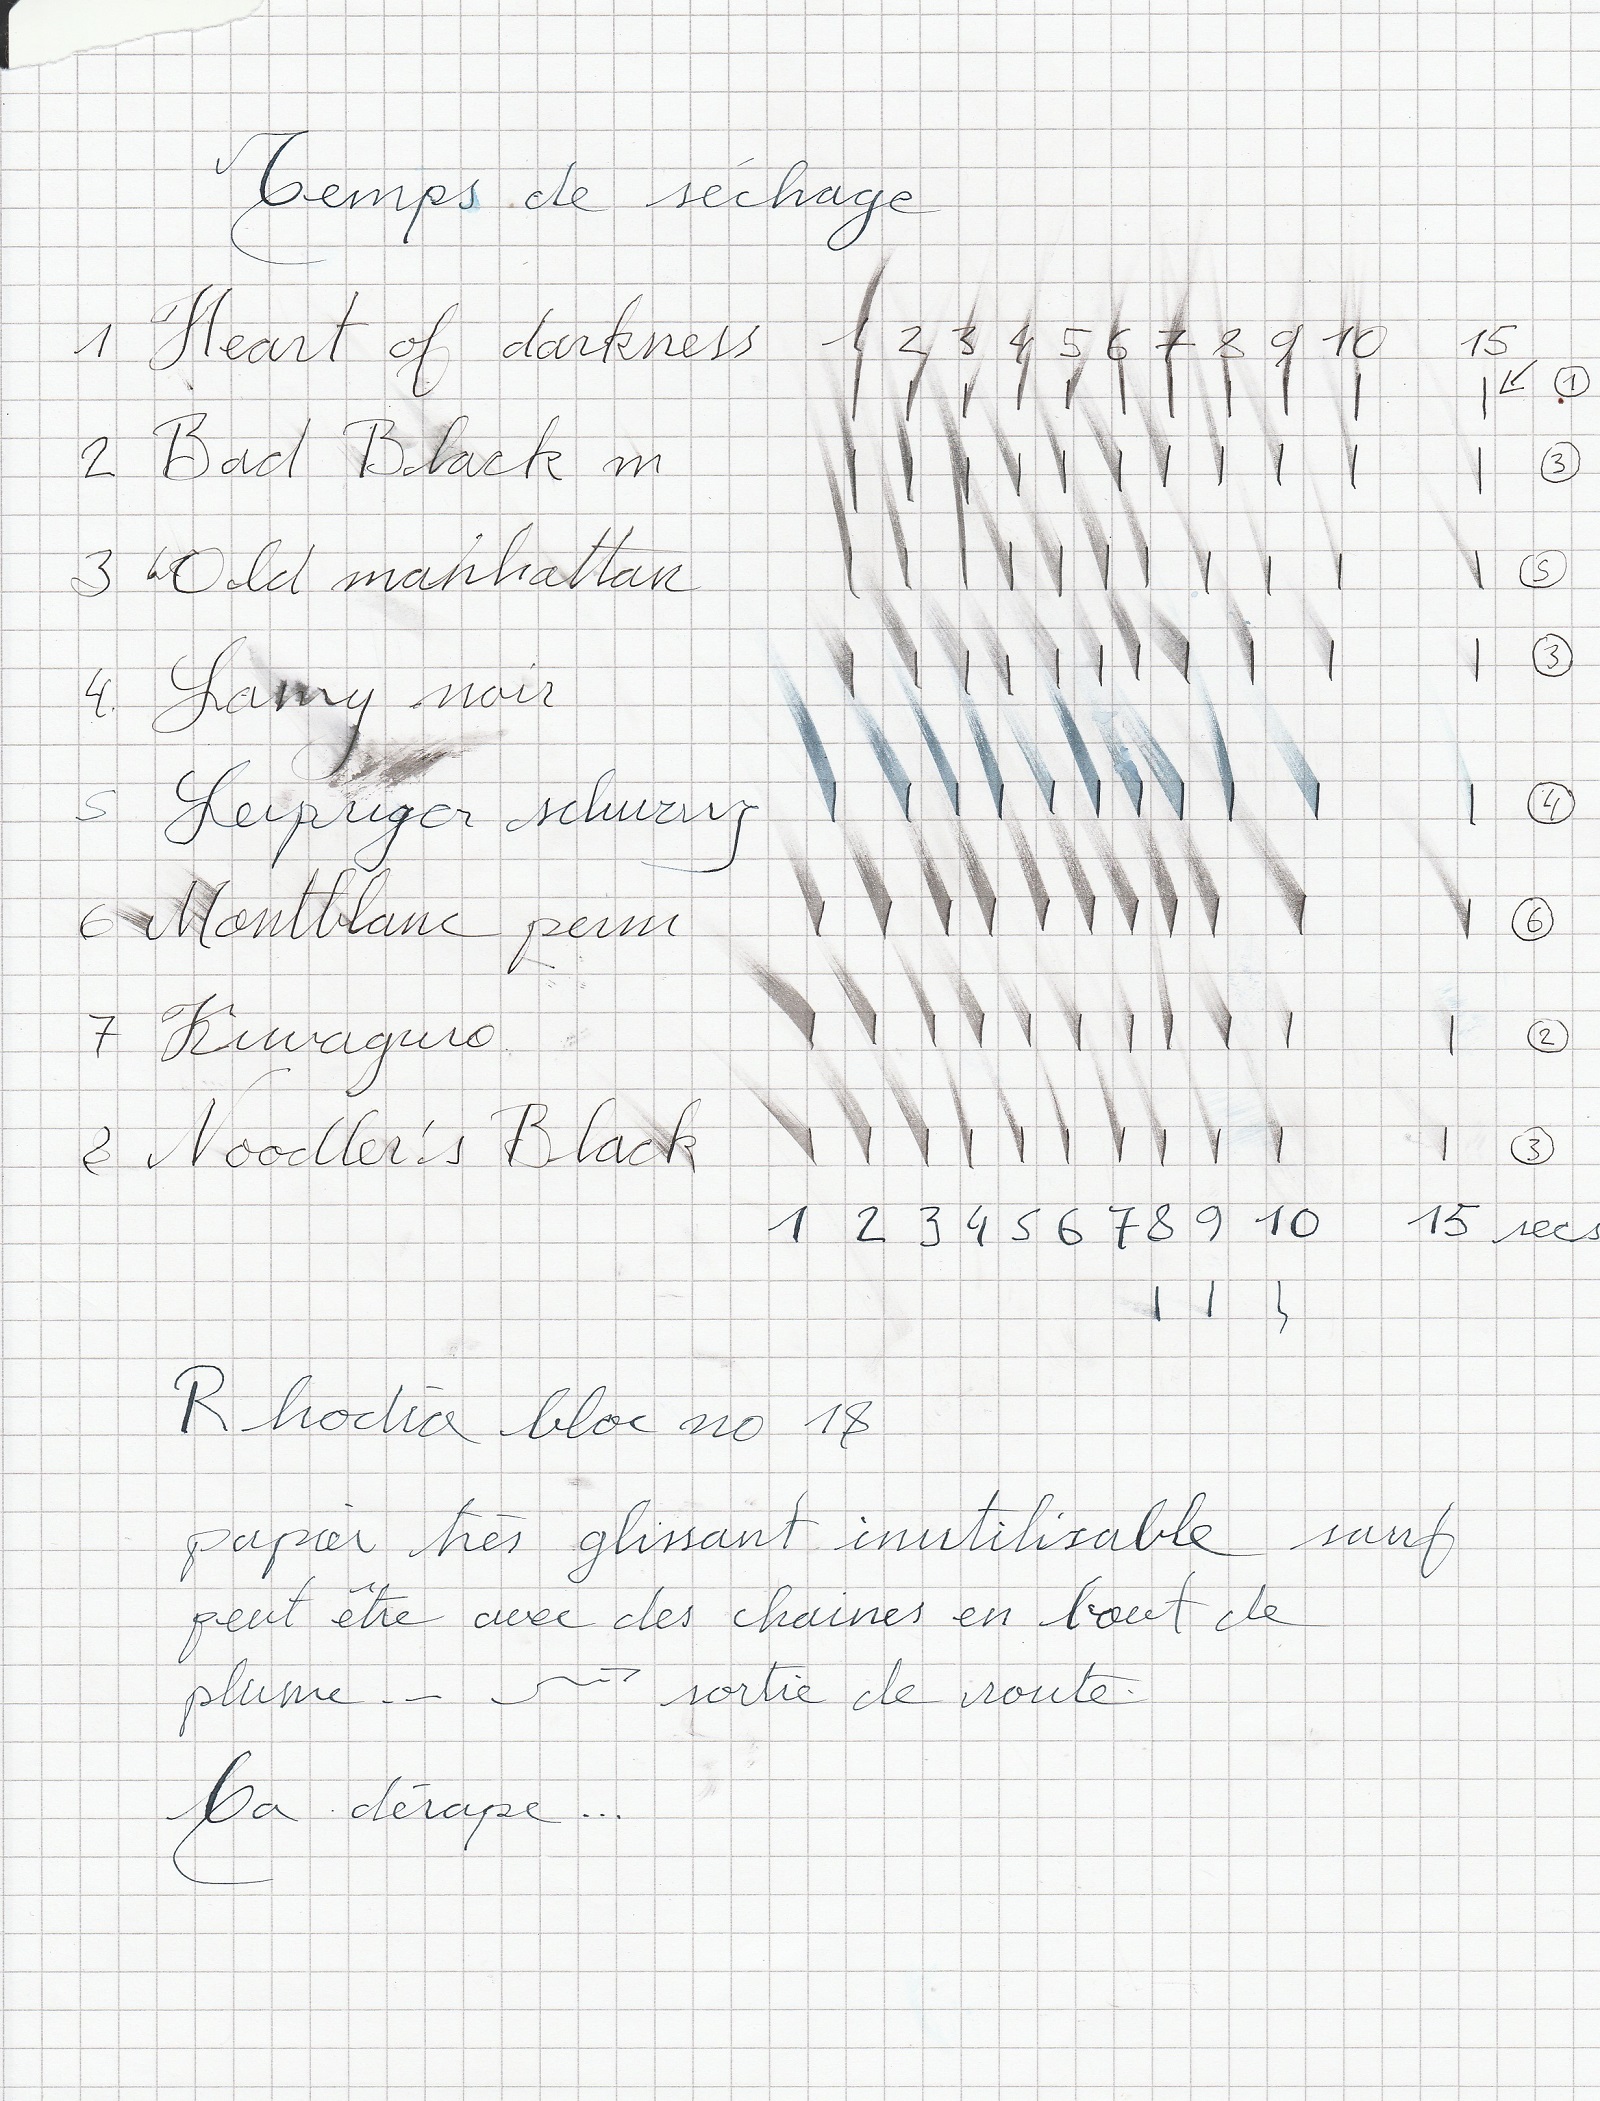 Temps de séchage
1 Heart of darkness 1 2 3 4 5 6 7 8 9 10 15
①
2 Bad Black m ③
3 Old manhattan ⑤
4. Lamy noir ③
5 Leipziger schwarz ④
6 Montblanc perm ⑥
7 Kiwaguro ②
8 Noodler's Black ③
1 2 3 4 5 6 7 8 9 10 15 secs
Rhodia bloc no 18
papier très glissant inutilisable sauf
peut être avec des chaines en bout de
plume -- sortie de route.
Ca dérape...